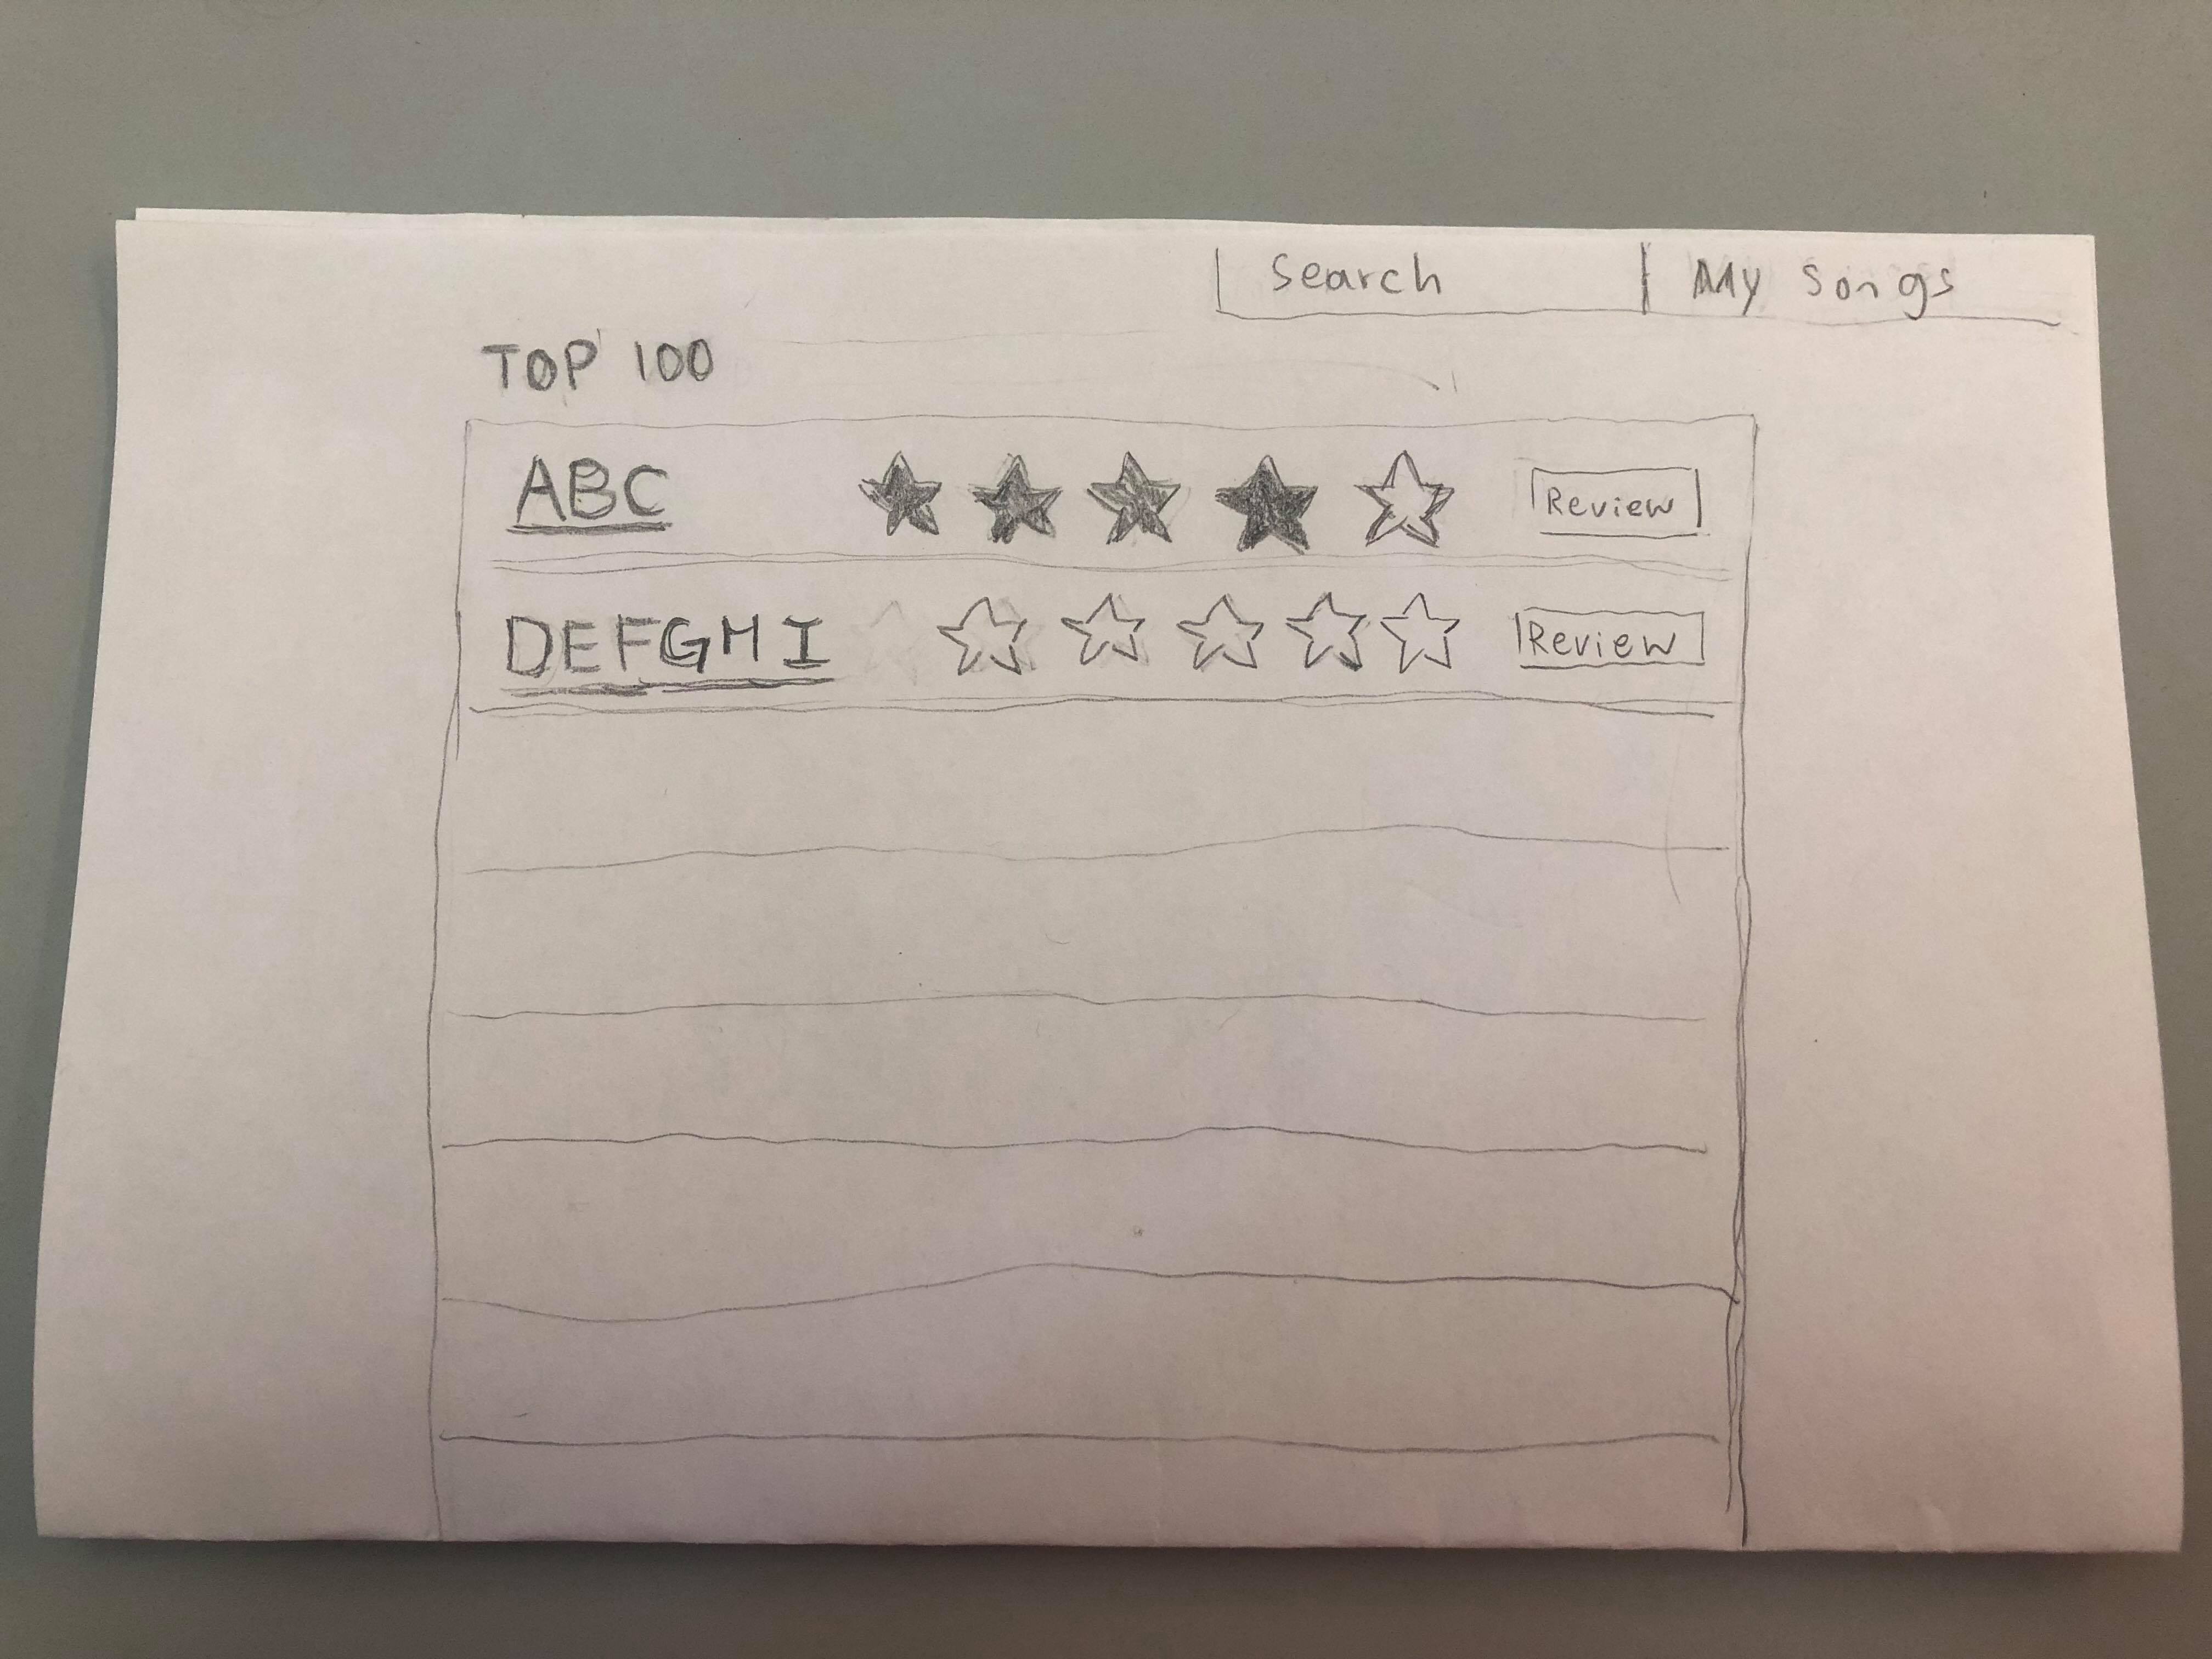 Search My Songs
TOP 100
ABC Review
DEFGHI Review